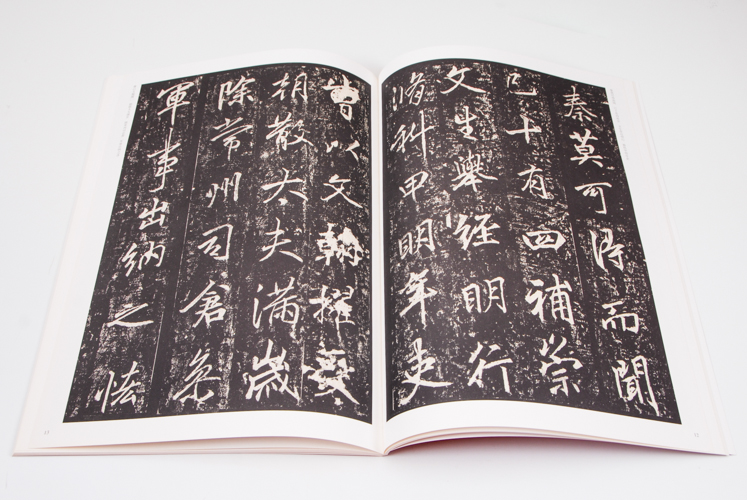 秦莫可得而聞
已十有四補崇
文生舉經明行
脩科甲明年吏
曹以文翰擢受
朝散太夫滿歲
除常州司倉參
軍事出納之恡